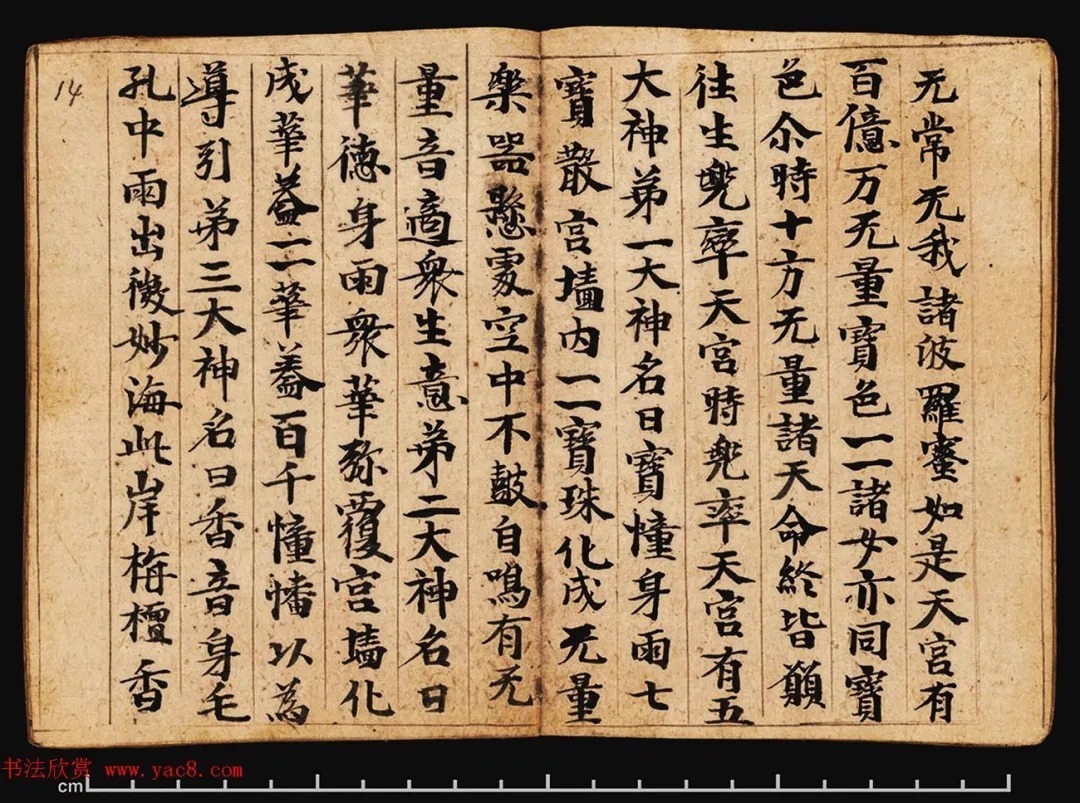 无常无我諸波羅蜜如是天宮有
百億万无量寶色一一諸女亦同寶
色尒時十方无量諸天命終皆願
往生兜率天宮時兜率天宮有五
大神弟一大神名曰寶幢身雨七
寶散宮墻内一一寶珠化成无量
樂器懸處空中不鼓自鳴有无
量音適衆生意弟二大神名曰
華德身雨衆華弥覆宮墻化
成華蓋一一華蓋百千幢幡以為
導引弟三大神名曰香音身毛
孔中雨出微妙海此岸栴檀香
14
书法欣赏 www.yac8.com
cm